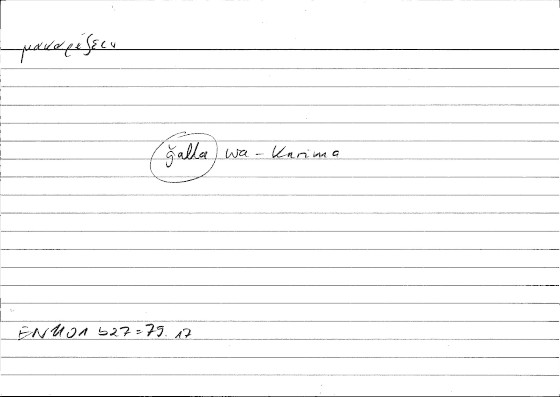 μακαρίζειν
ǧalla wa-Karima
EN 1101 b27=79.17